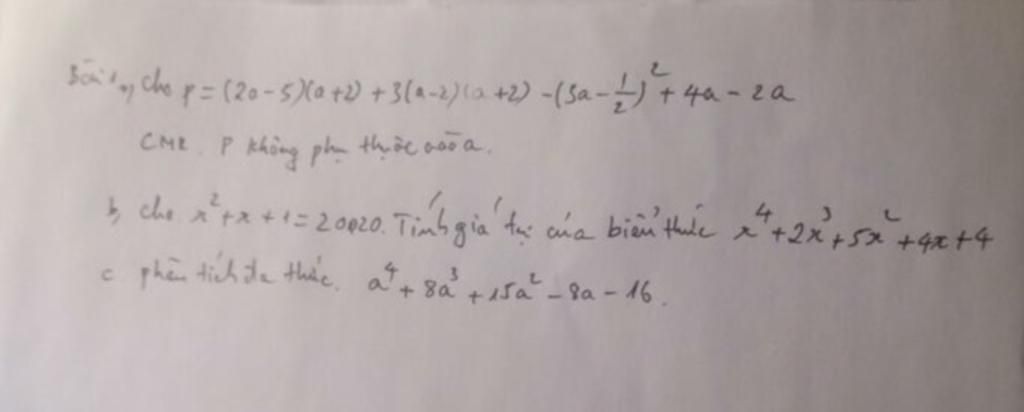 Bài 1, a, Cho P = (2a-5)(a+2) + 3(a-2)(a+2) - (3a - 1/2)² + 4a - 2a
CMR. P không phụ thuộc vào a.
b, cho x² + x + 1 = 20020. Tính giá trị của biểu thức x⁴ + 2x³ + 5x² + 4x + 4
c. phân tích đa thức. a⁴ + 8a³ + 15a² - 8a - 16.